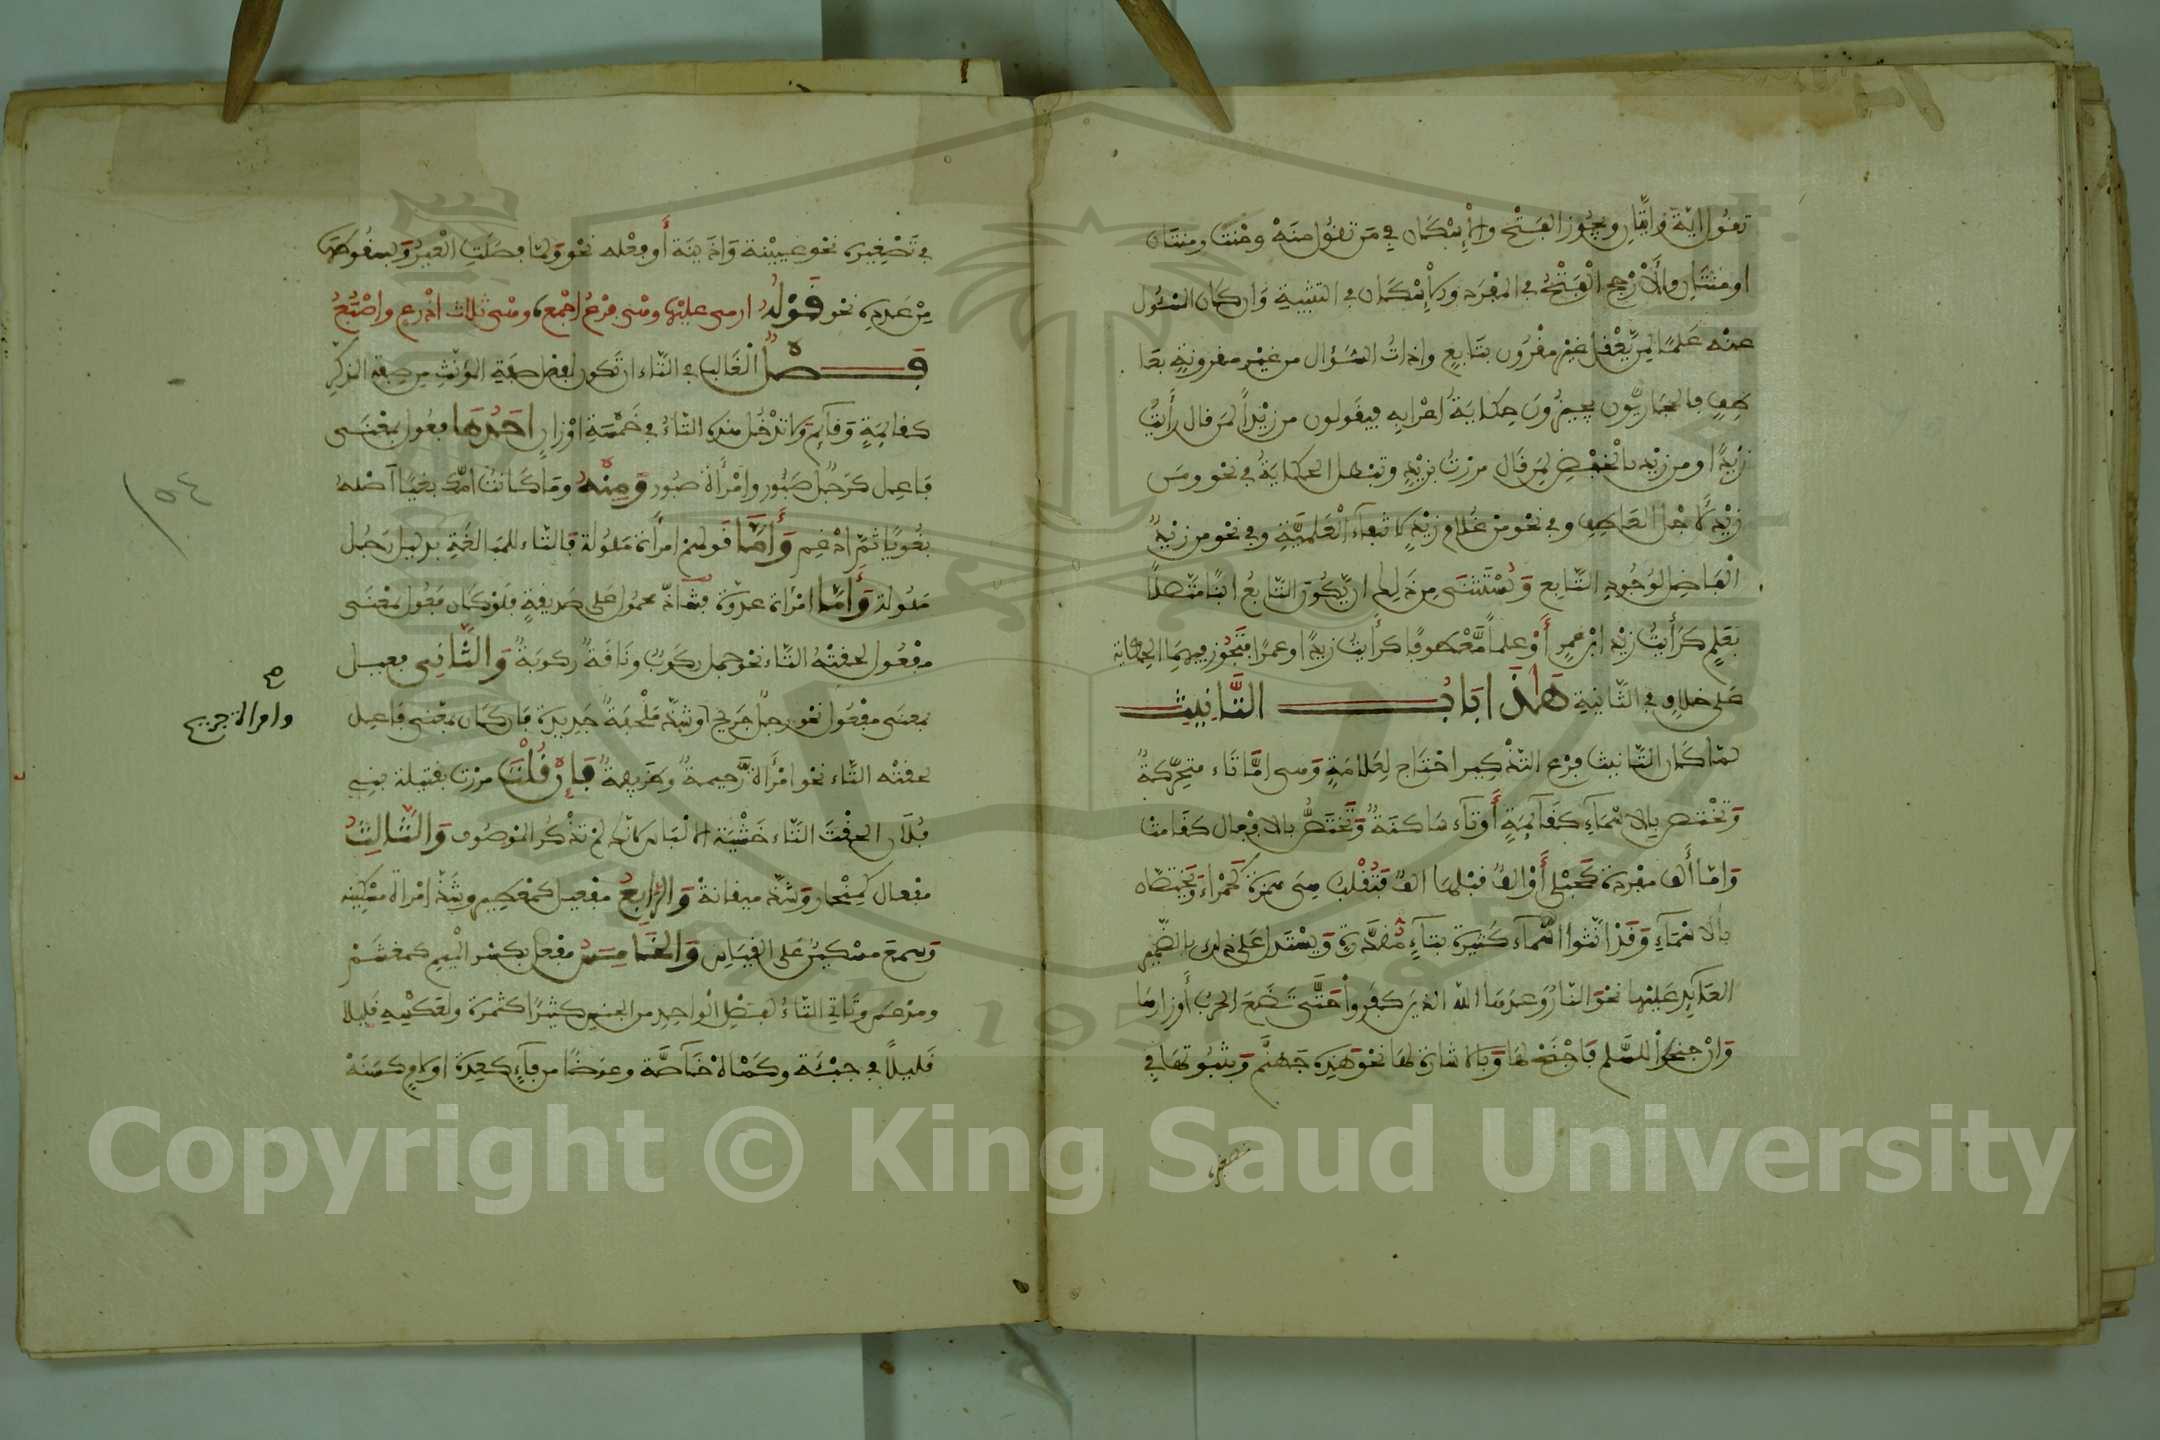 تقول اية وايتان ويجوز الفتح والاسكان في من تقول منه ومنت ومنتان
او منتان والارجح الفتح في المفرد والاسكان في التثنية وان كان المسؤل
عنه علما لمن يعقل غير مقرون بتابع واداة السؤال من غير مقرونة بعا
طف فالحجازيون يجيزون حكاية اعرابه فيقولون من زيدا لمن قال رأيت
زيدا ومن زيد بالخفض لمن قال مررت بزيد وتبطل الحكاية في نحو ومن
زيد لاجل العاطف وفي نحو من غلام زيد لانتفاء العلمية وفي نحو من زيد
الفاضل لوجود التابع ويستثنى من ذلك ان يكون التابع ابنا متصلا
بعلم كرأيت زيد ابن عمرو أو علما معطوفا كرأيت زيدا وعمرا فتجوز فيهما الحكاية
على خلاف في الثانية هذا باب التأنيث
لما كان التانيث فرع التذكير احتاج لعلامة وهي اما تاء متحركة
وتختص بالاسماء كقائمة أو تاء ساكنة وتختص بالافعال كقامت
واما ألف مفردة كحبلى أو الف قبلها الف فتقلب هي همزة كحمراء ويختصان
بالاسماء وقد انثوا اسماء كثيرة بتاء مقدرة ويستدل على ذلك بالضمير
العائد عليها نحو النار وعدها الله الذين كفروا حتى تضع الحرب أوزارها
وان جنحوا للسلم فاجنح لها وبالاشارة لها نحو هذه جهنم وبثبوتها في
تصغيره
في تصغيره نحو عيينة واذينة أو فعله نحو ولما فصلت العير وبسقوطها
من عدده نحو قوله ارمي عليها وهي فرع اجمع وهي ثلاث اذرع واصبع
فصل الغالب في التاء ان تكون لفصل صفة المؤنث من صفة المذكر
كقائمة وقائم ولا تدخل هذه التاء في خمسة اوزان احدها فعول بمعنى
فاعل كرجل صبور وامرأة صبور ومنه وما كانت امك بغيا اصله
بغويا ثم ادغم وأما قولهم امرأة ملولة فالتاء للمبالغة بدليل رجل
ملولة وأما امرأة عدوة فشاذ محمول على صديقة فلو كان فعول بمعنى
مفعول لحقته التاء نحو جمل ركوب وناقة ركوبة والثاني فعيل
بمعنى مفعول نحو رجل جريح وشذ ملحفة جديدة فان كان بمعنى فاعل
لحقته التاء نحو امرأة رحيمة وظريفة فإن قلت مررت بقتيلة بني
فلان الحقت التاء خشية الالباس لانك لم تذكر الموصوف والثالث
مفعال كمنحار وشذ ميقانة والرابع مفعيل كمعطير وشذ امرأة مسكينة
وسمع مسكين على القياس والخامس مفعل بكسر الميم كمغشم
ومدعس وتاتي التاء لفصل الواحد من الجنس كثيرا كثمرة ولعكسه قليلا
قليلا في جبئة وكمأة خاصة وعوضا من فاء كعدة او لام كسنة
صح
وامراة جريح
٥٤